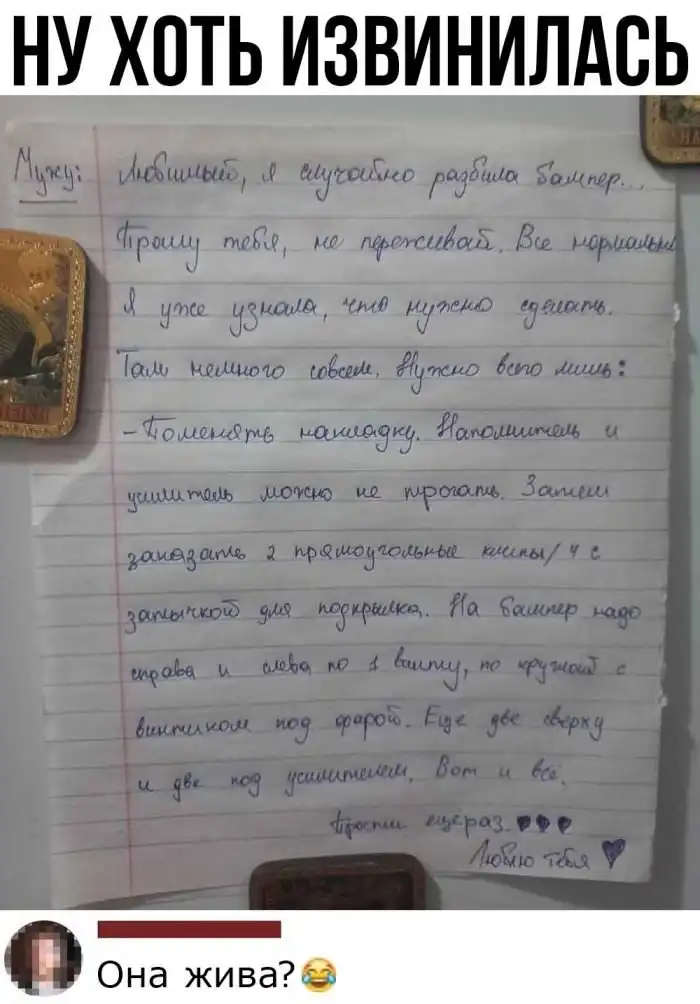 НУ ХОТЬ ИЗВИНИЛАСЬ
Мужу: Любимый, я случайно разбила бампер...
Прошу тебя, не переживай. Все нормально
Я уже узнала, что нужно сделать.
Там немного совсем. Нужно всего лишь:
- Поменять накладку. Наполнитель и
усилитель можно не трогать. Затем
заказать 2 прямоугольные клипы/ 4 с
затычкой для подкрылка. На бампер надо
справа и слева по 1 винту, по круглой с
винтиком под фарой. Еще две сверху
и две под усилителем. Вот и всё.
Прости ещераз. ♥♥♥
Люблю тебя ♥
Она жива?😂